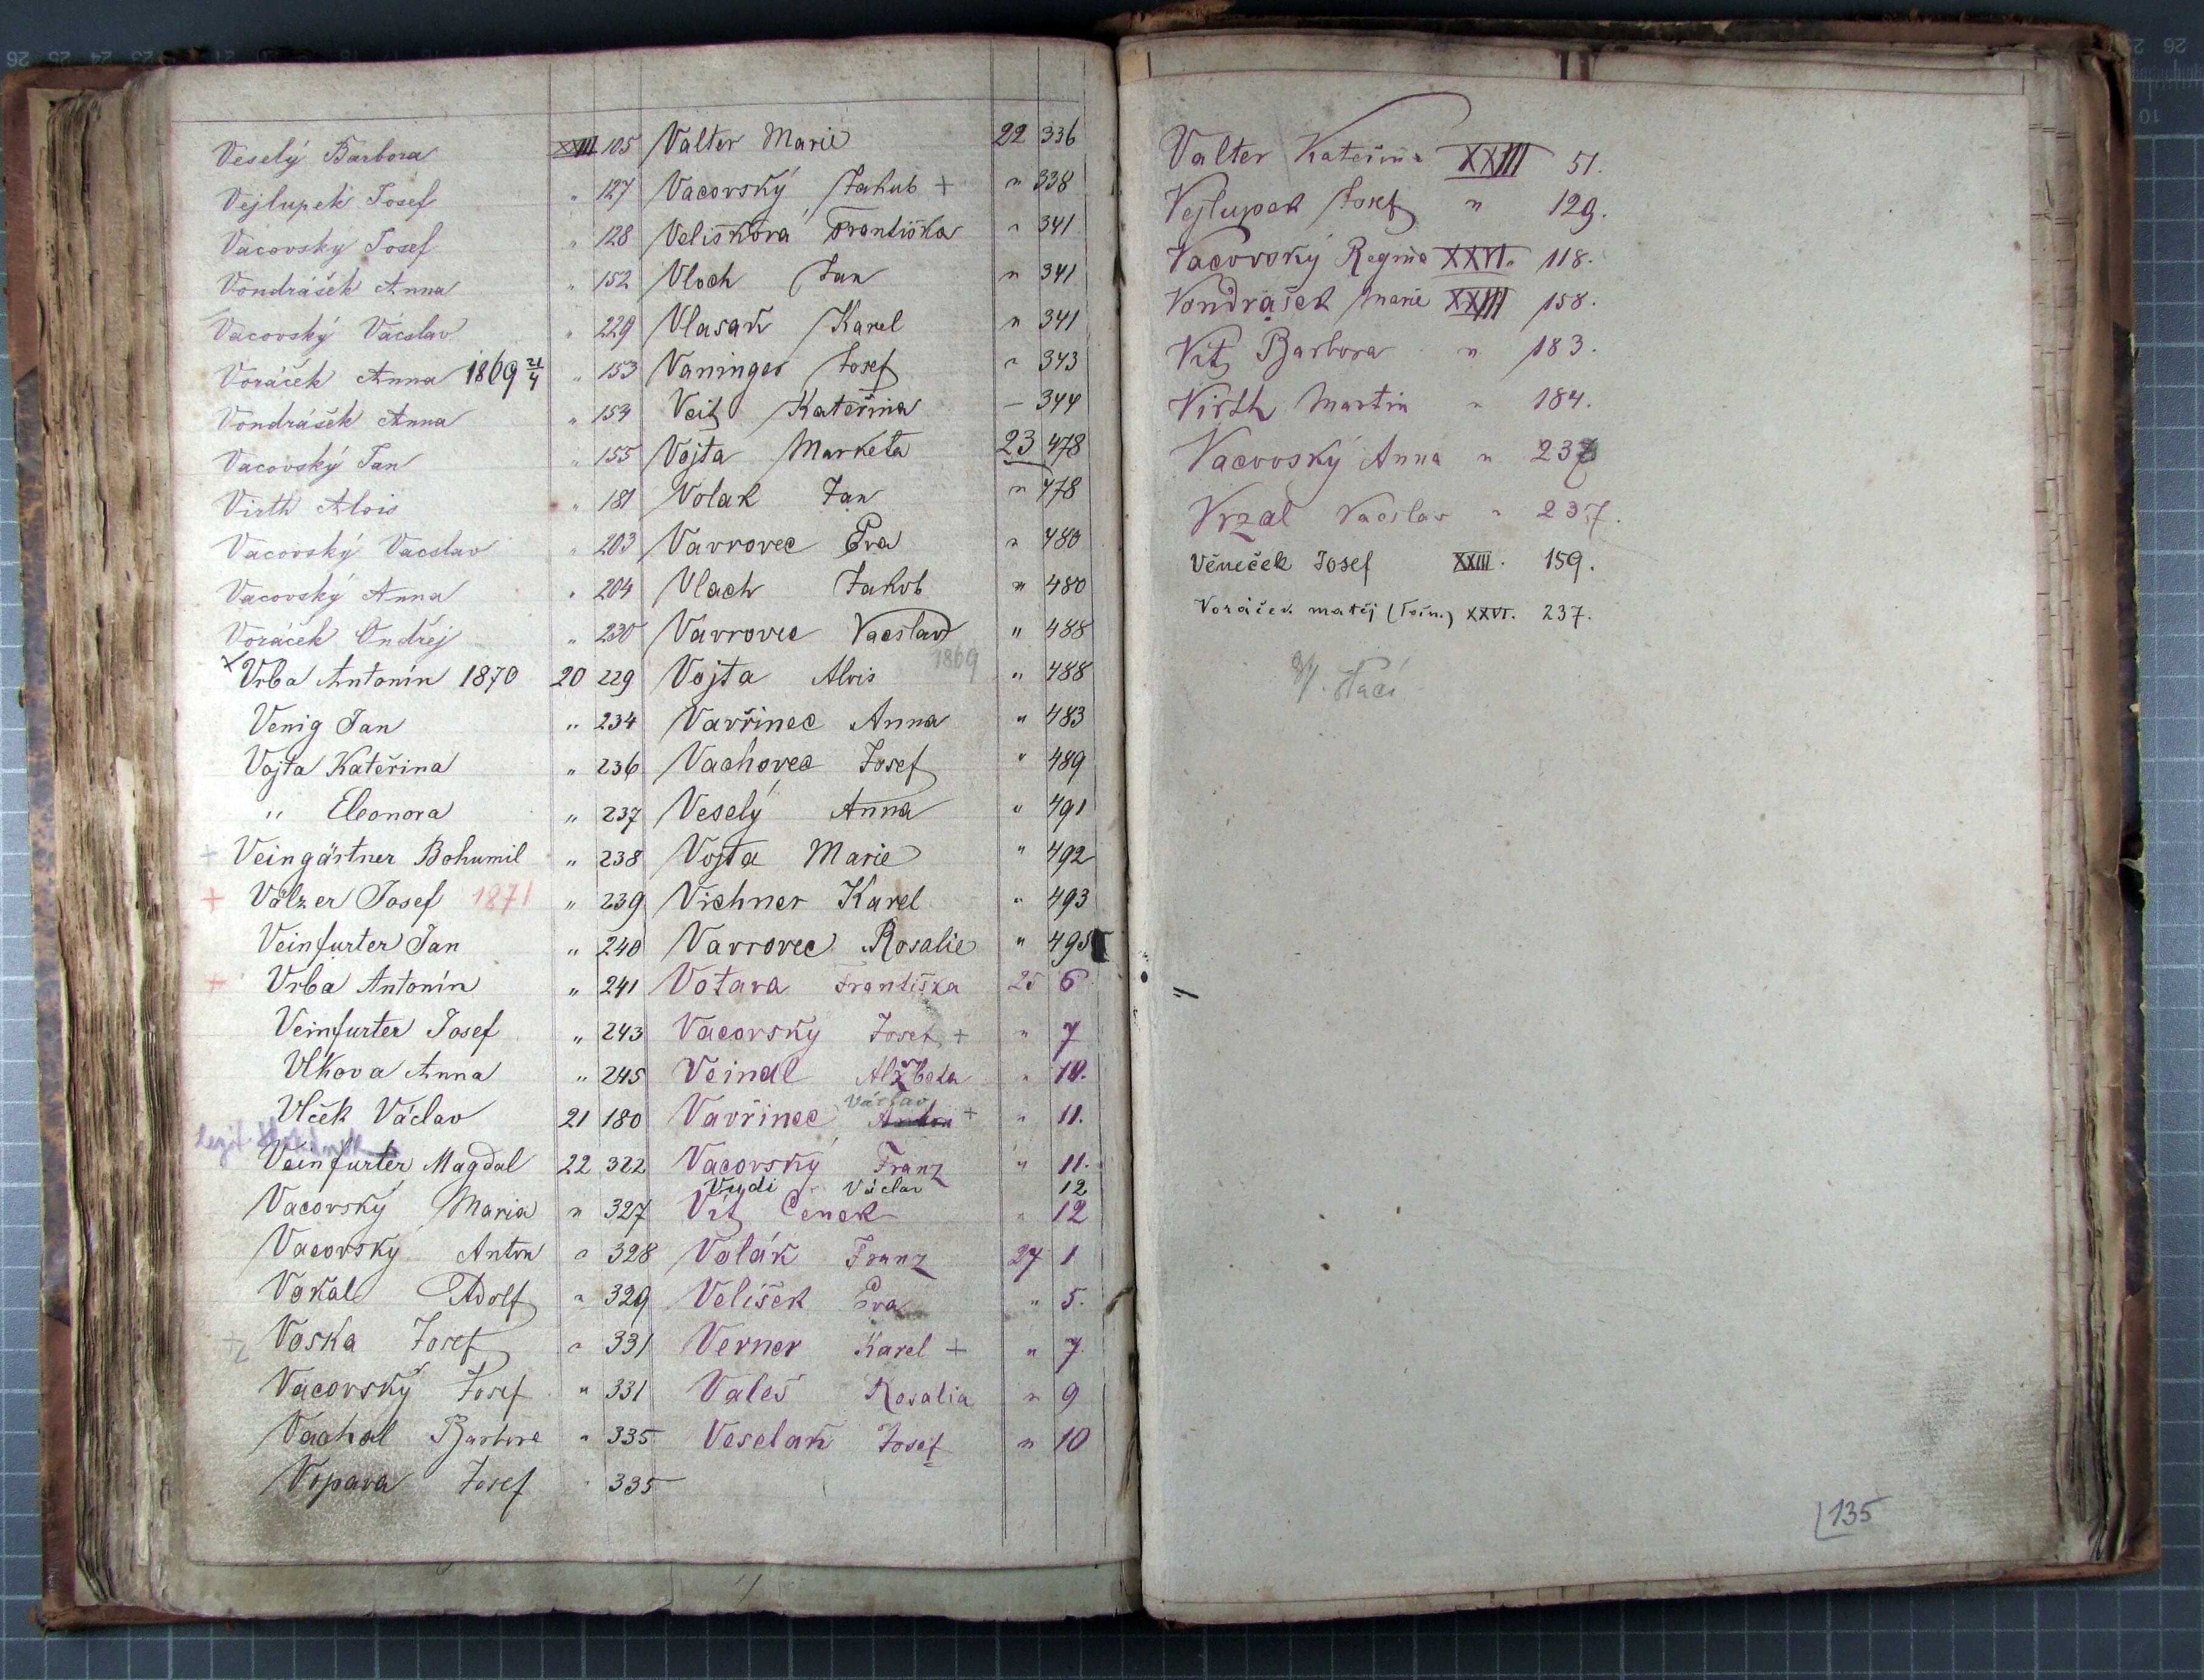 Veselý Barbora XXIII 105
Vejlupek Josef " 127
Vacovský Josef " 128
Vondrášek Anna " 152
Vacovský Václav " 229
Voráček Anna 1869 21/4 " 153
Vondrášek Anna " 154
Vacovský Jan " 155
Virth Alois " 181
Vacovský Vacslav " 203
Vacovský Anna " 204
Voráček Ondřej " 230
× Vrba Antonín 1870 20 229
Venig Jan " 234
Vojta Kateřina " 236
" Eleonora " 237
+ Veingärtner Bohumil " 238
+ Völzer Josef 1871 " 239
Veinfurter Jan " 240
+ Vrba Antonín " 241
Veinfurter Josef " 243
Vlkova Anna " 245
Vlček Václav 21 180
legit.
Veinfurter Magdal 22 322
Vacovský Maria " 327
Vacovský Anton " 328
Vokal Adolf " 329
+ Voska Josef " 331
Vacovský Josef " 331
Váchal Barbora " 335
Vopava Josef " 335
Valter Marie 22 336
Vacovský Jakub + " 338
Veliškova Františka " 341
Vloch Jan " 341
Vlasak Karel " 341
Vaninger Josef " 343
Veit Kateřina – 344
Vojta Marketa 23 478
Volak Jan " 478
Vavrovec Eva " 480
Vlach Jakob " 480
Vavrovec Vacslav " 488
1869
Vojta Alois " 488
Vavřinec Anna " 483
Vachovec Josef " 489
Veselý Anna " 491
Vojta Marie " 492
Vichner Karel " 493
Vavrovec Rosalie " 495
Votava Františka 25 6
Vacovský Josef + " 7
Veindl Alžbeta " 10.
Václav
Vavřinec Anton + " 11.
Vacovský Franz " 11.
Vudi Václav 12
Vít Čenek " 12
Volák Franz 27 1
Velišek Eva " 5.
Verner Karel + " 7
Valeš Rosalia " 9
Veselak Josef " 10
Valter Kateřina XXIII 51.
Vejlupek Josef " 129.
Vacovský Regina XXVI. 118.
Vondrašek Marie XXIII 158.
Vít Barbora " 183.
Virth Martin " 184.
Vacovský Anna " 237
Vrzal Vacslav " 237.
Věneček Josef XXIII. 159.
Voráček matěj XXVI. 237.
135